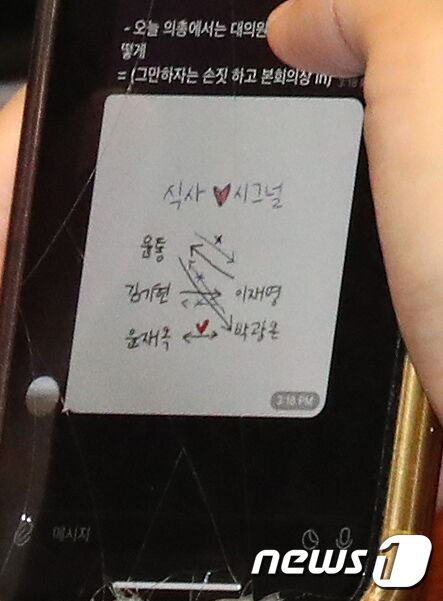 - 오늘 의총에서는 대의원
떻게
= (그만하자는 손짓 하고 본회의장 in)
식사 ♥ 시그널
윤통
김기현 이재명
윤재옥 박광온
3:18 PM
메시지
news1